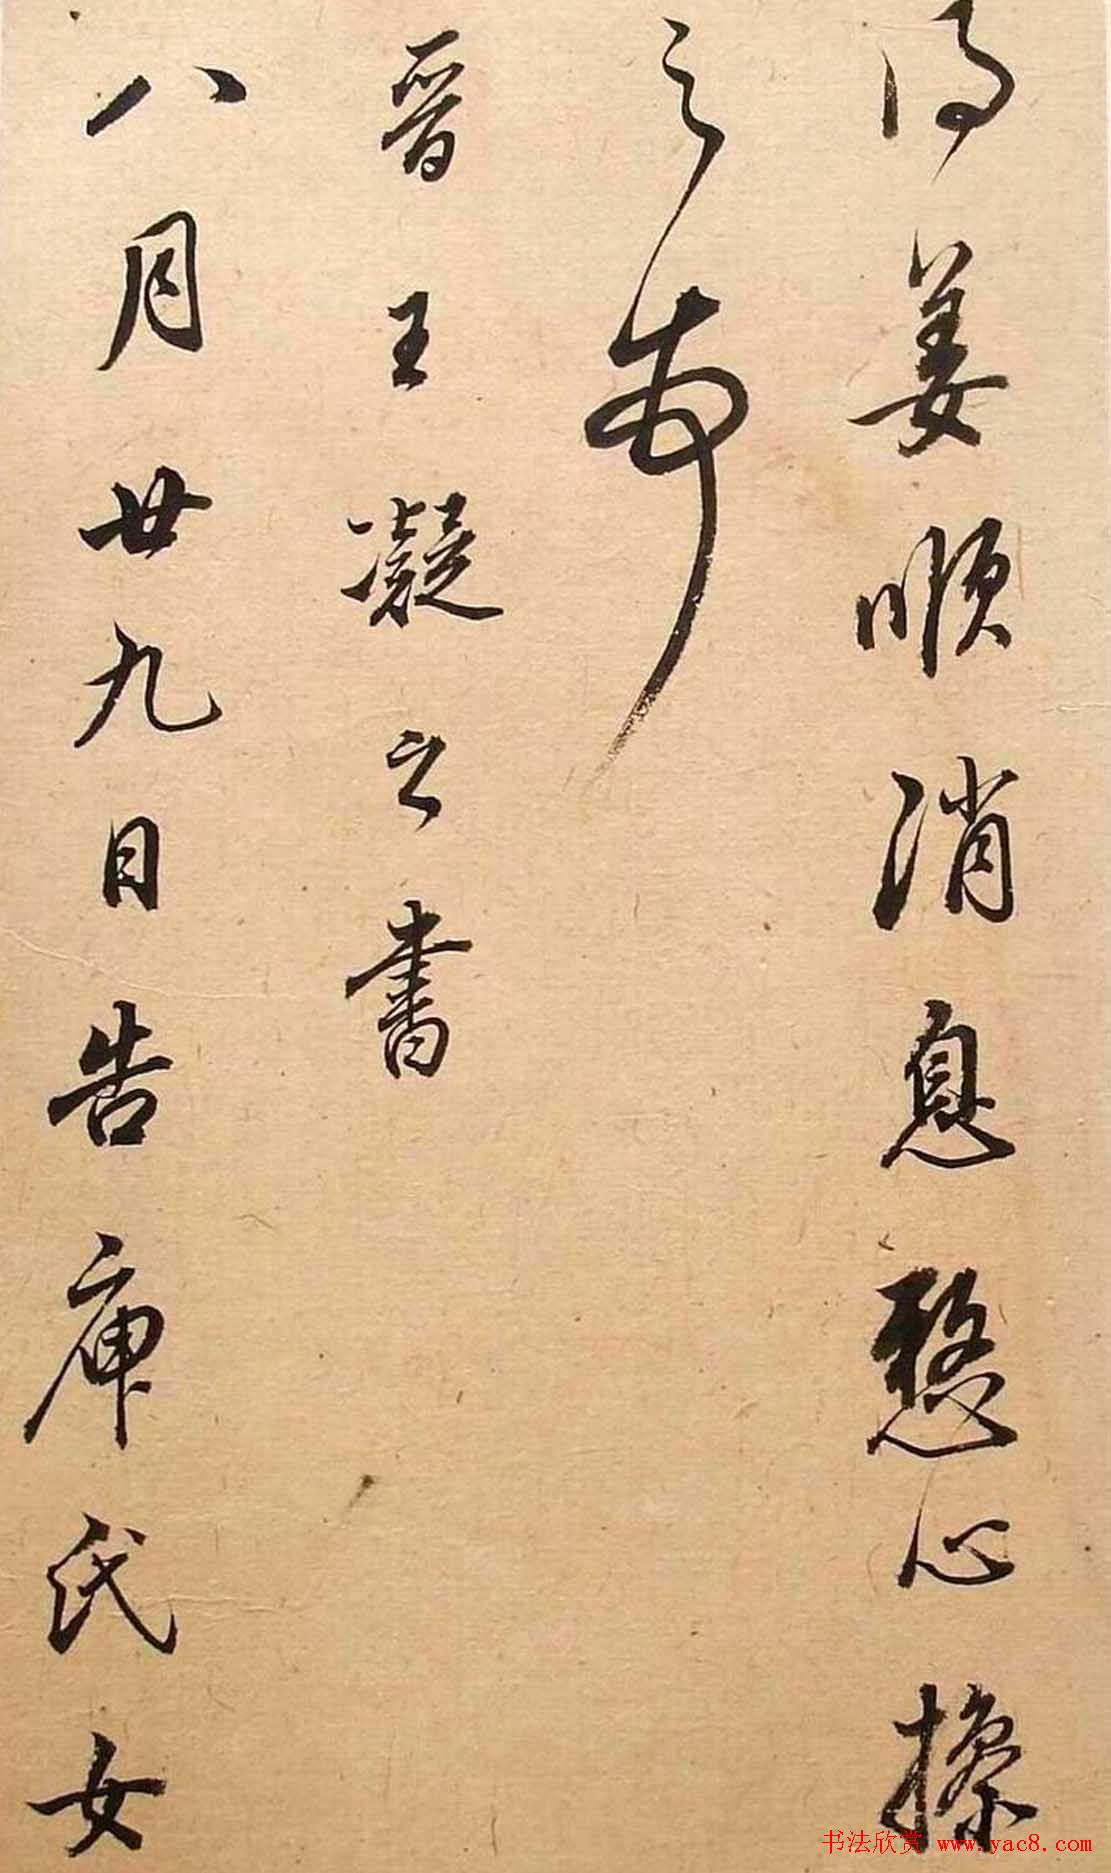 得姜順消息懸心操
之
晉王凝之書
八月廿九日告庾氏女
书法欣赏 www.yac8.com